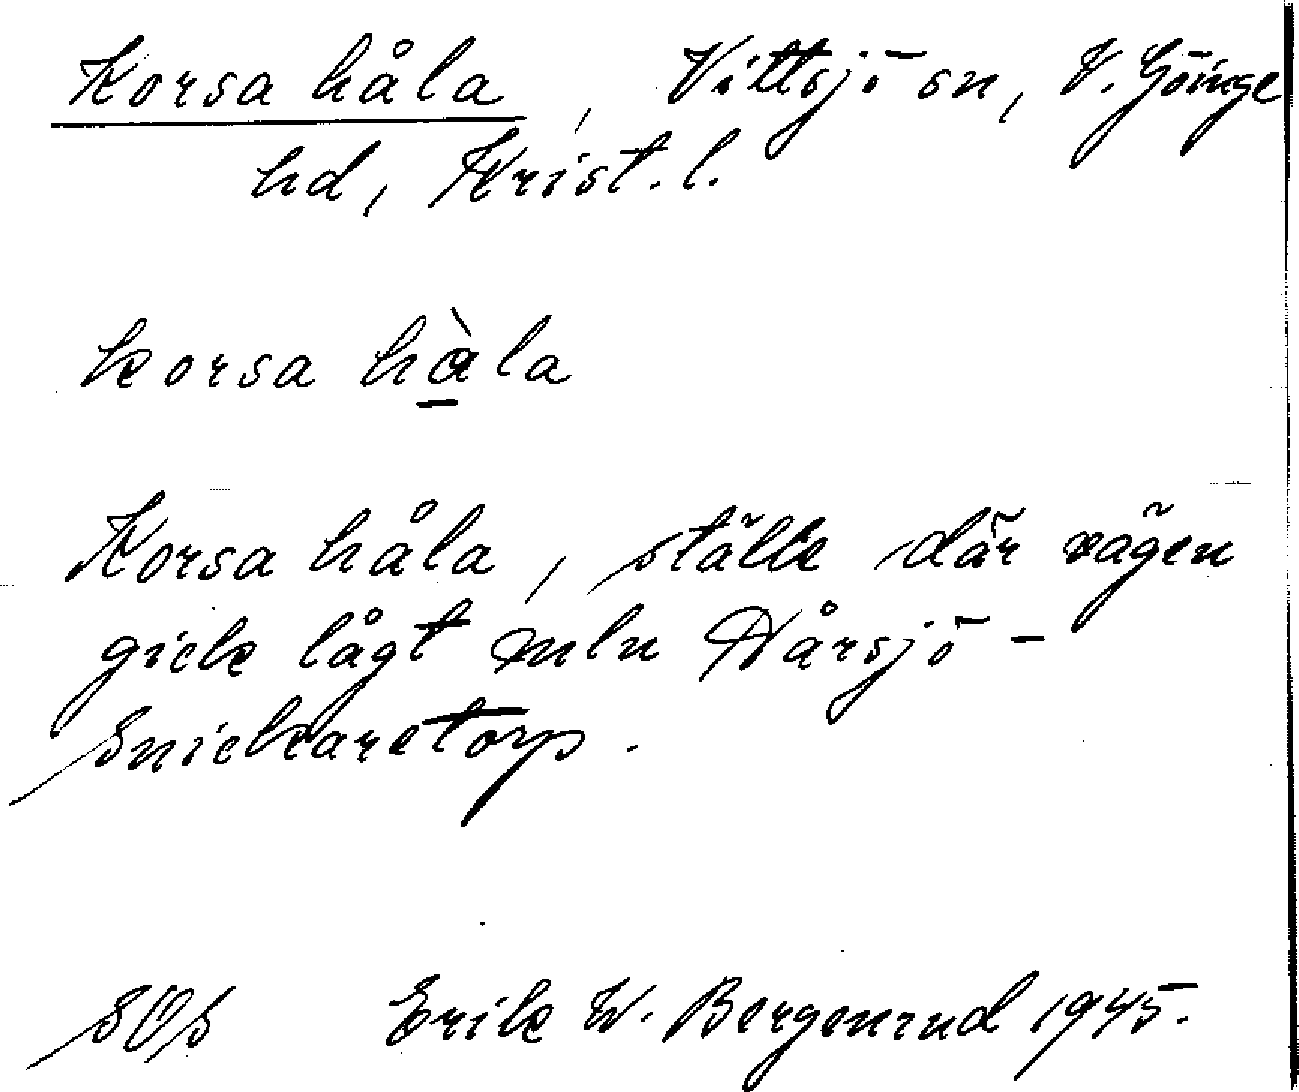 Korsa håla, Vittsjö sn, V. Göinge
hd, Krist. l.
korsa hàla
Korsa håla, ställe där vägen
gick lågt mln Hårsjö -
Snickaretorp.
SOS Erik W. Bergenrud 1945.